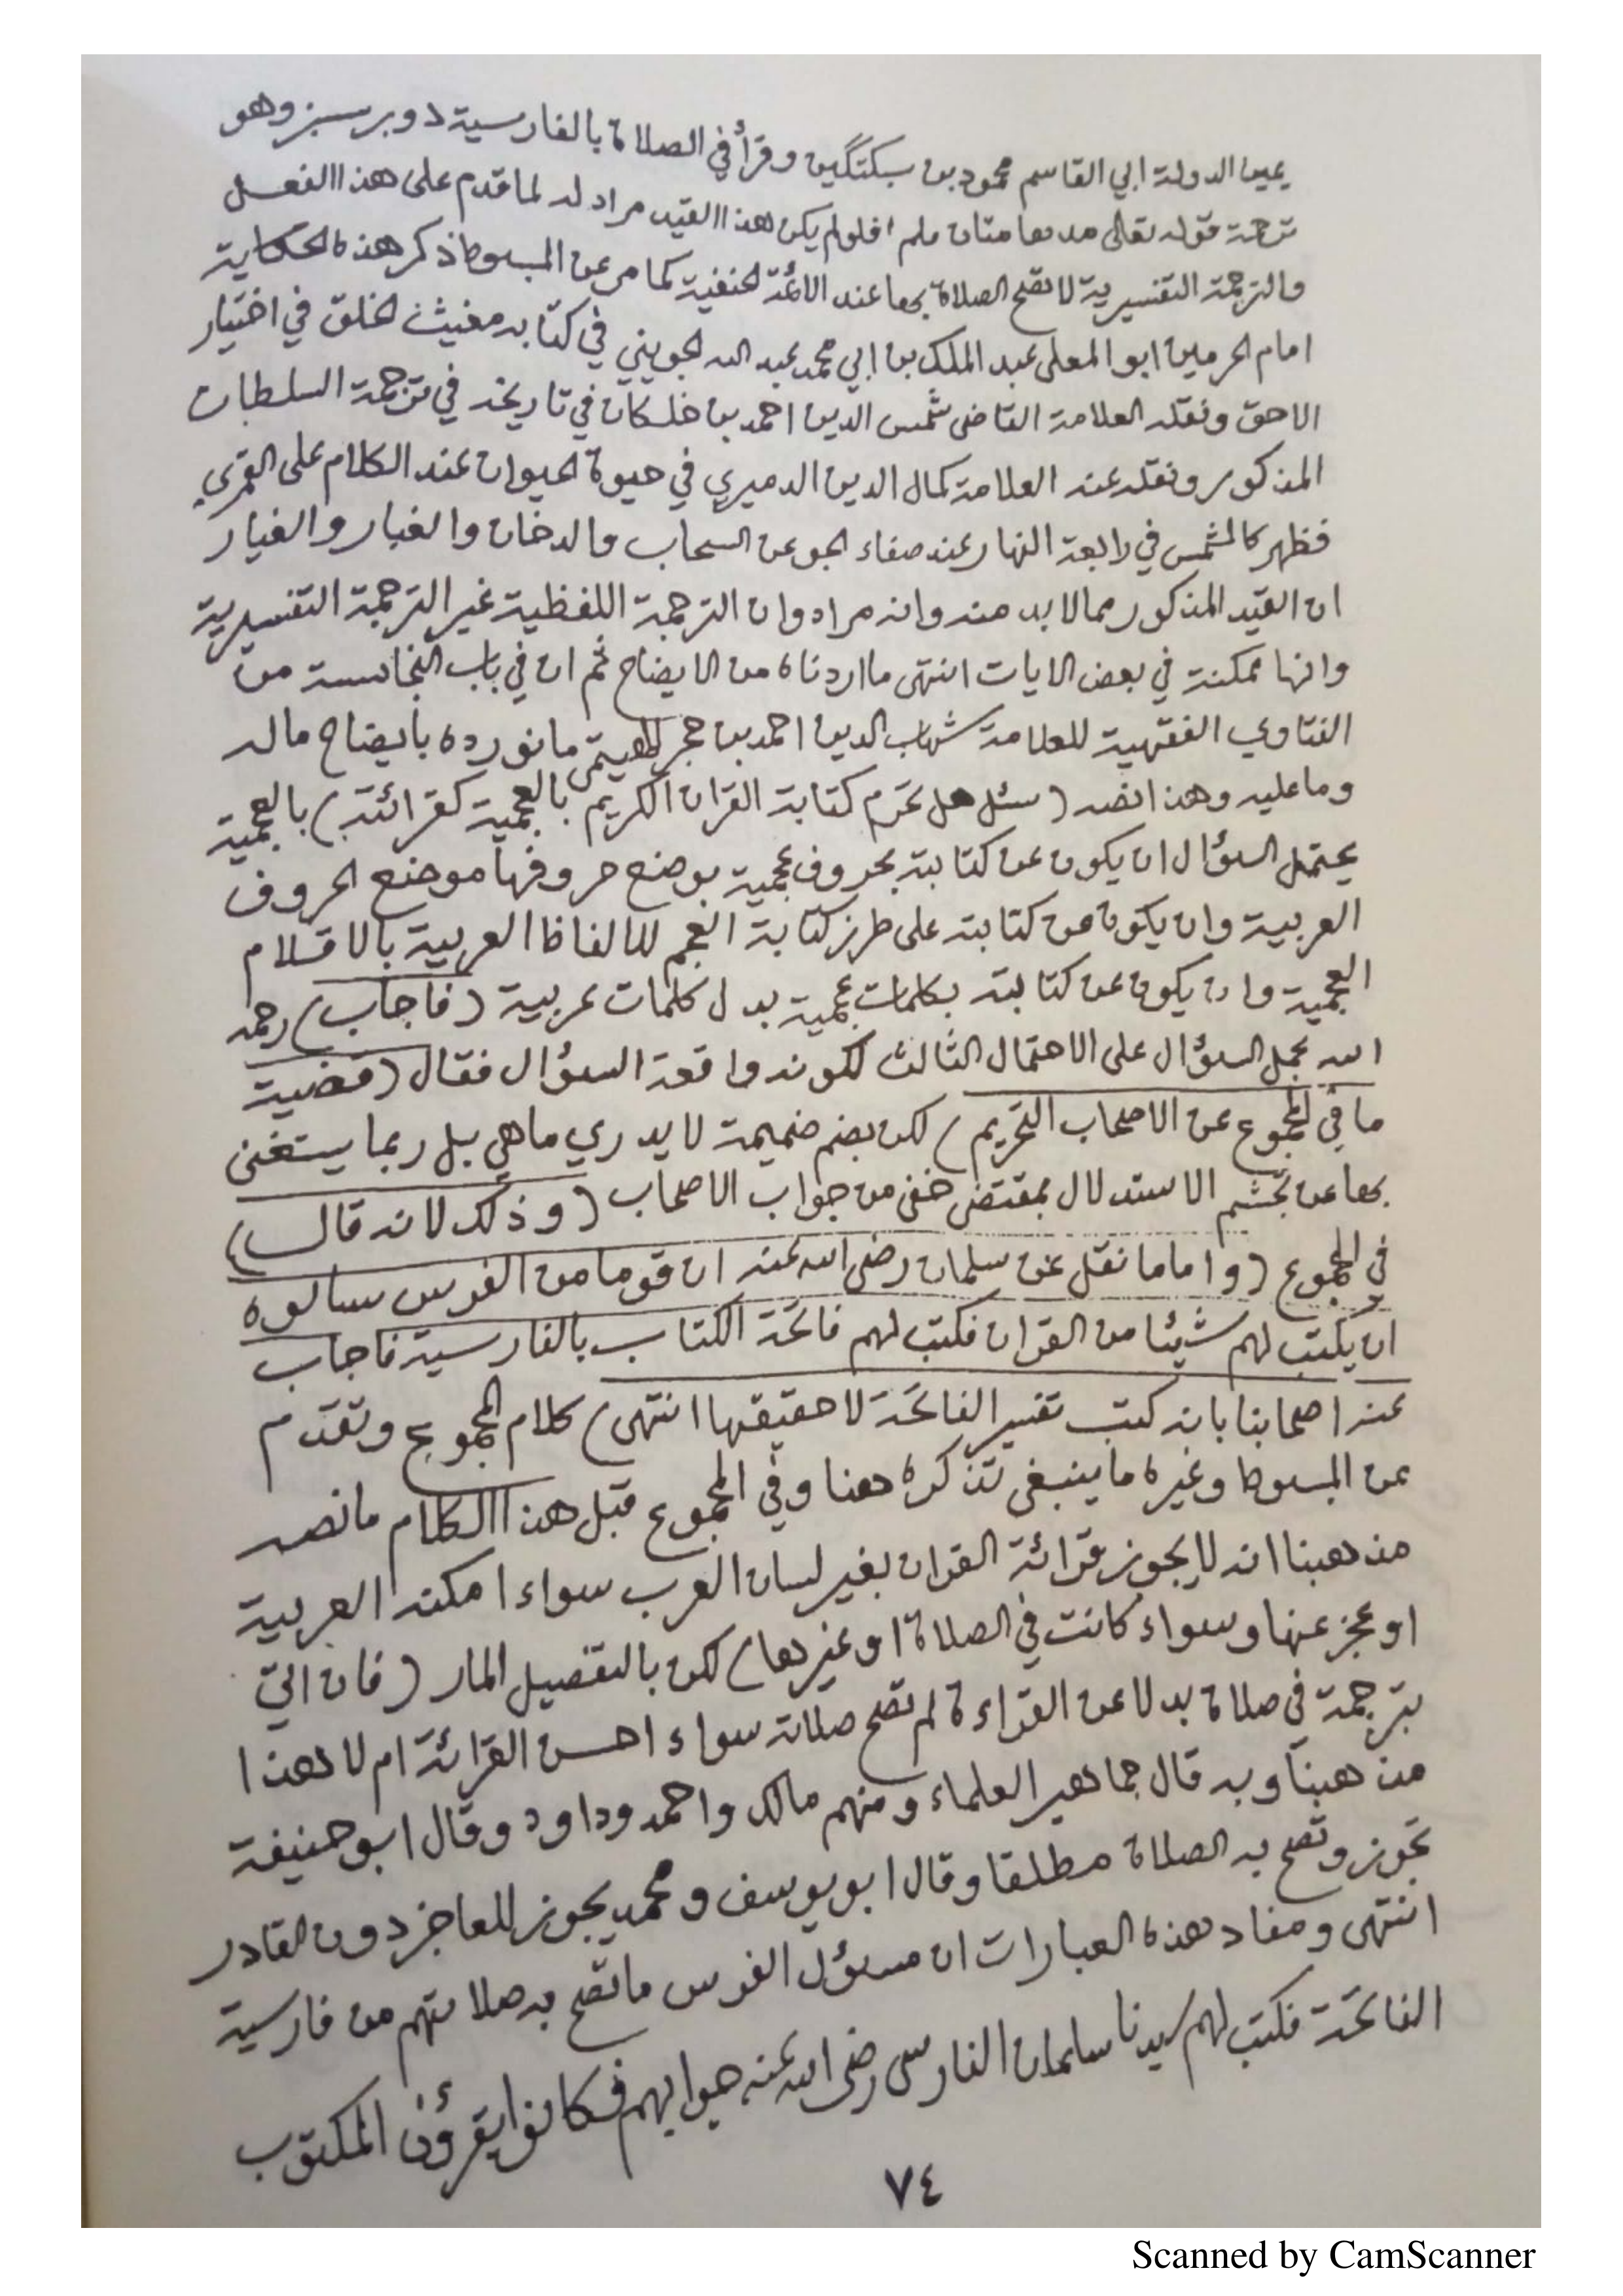 يمين الدولة ابي القاسم محمود بن سبكتگين وقرأ في الصلاة بالفارسية دوبر سبز وهو
ترجمة قوله تعالى مدهامتان فلو لم يكن هذا القيد مراد له لما قدم على هذا الفعل
والترجمة التفسيرية لا تصح الصلاة بها عند الائمة الحنفية كما مر عن المبسوط ذكر هذه الحكاية
امام الحرمين ابو المعلى عبد الملك بن ابي محمد عبد الله الجويني في كتابه مغيث الخلق في اختيار
الاحق ونقله العلامة القاضى شمس الدين احمد بن خلكان في تاريخه في ترجمة السلطان
المذكور ونقله عنه العلامة كمال الدين الدميري في حيوة الحيوان عند الكلام على القمري
فظهر كالشمس في رابعة النهار عند صفاء الجو عن السحاب والدخان والغبار والغيار
ان القيد المذكور مما لا بد منه وانه مراد وان الترجمة اللفظية غير الترجمة التفسيرية
وانها ممكنة في بعض الايات انتهى ما اردناه من الايضاح ثم ان في باب النجاسة من
الفتاوي الفقهية للعلامة شهاب الدين احمد بن حجر الهيتمي ما نورده بايضاح ما له
وما عليه وهذا نصه (سئل هل تحرم كتابة القران الكريم بالعجمية كقرائته) بالعجمية
يحتمل السؤال ان يكون عن كتابته بحروف عجمية بوضع حروفها موضع الحروف
العربية وان يكون عن كتابته على طرز كتابة العجم للالفاظ العربية بالاقلام
العجمية وان يكون عن كتابته بكلمات عجمية بدل كلمات عربية (فاجاب) رحمه
الله بحمل السؤال على الاحتمال الثالث لكونه واقعة السؤال فقال (قضية
ما في المجموع عن الاصحاب التحريم) لكن بضم ضميمة لا يدري ما هي بل ربما يستغنى
بها عن تجشم الاستدلال بمقتضى خفى من جواب الاصحاب (وذلك لانه قال)
في المجموع (واما ما نقل عن سلمان رضى الله عنه ان قوما من الفرس سالوه
ان يكتب لهم شيئا من القران فكتب لهم فاتحة الكتاب بالفارسية فاجاب
عنه اصحابنا بانه كتب تفسير الفاتحة لا حقيقها انتهى) كلام المجموع وتقدم
عن المبسوط وغيره ما ينبغى تذكره هنا وفي المجموع قبل هذا الكلام ما نصه
مذهبنا انه لا يجوز قرائة القران بغير لسان العرب سواء امكنه العربية
او عجز عنها وسواء كانت في الصلاة او غيرها) لكن بالتفصيل المار (فان اتي
بترجمة في صلاة بدلا عن القراءة لم تصح صلاته سواء احسن القرائة ام لا هذا
مذهبنا وبه قال جماهير العلماء ومنهم مالك واحمد وداود وقال ابو حنيفة
تجوز وتصح به الصلاة مطلقا وقال ابو يوسف ومحمد يجوز للعاجز دون القادر
انتهى ومفاد هذه العبارات ان مسؤل الفرس ما تصح به صلاتهم من فارسية
الفاتحة فكتب لهم سيدنا سلمان الفارسى رضى الله عنه جوابهم فكانوا يقرؤن المكتوب
٧٤
Scanned by CamScanner